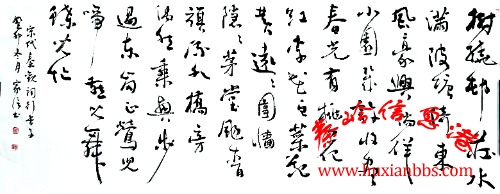 树绕村庄水
满陂塘倚东
风豪兴徜徉
小园几许收尽
春光有桃花
红李花白菜花
黄远远围墙
隐隐茅堂飏青
旗流水桥旁
偶然乘兴步
过东冈正莺儿
啼燕儿舞
蝶儿忙
宋代秦观词行香子
癸卯冬月家信书
www.huxianbbs.com